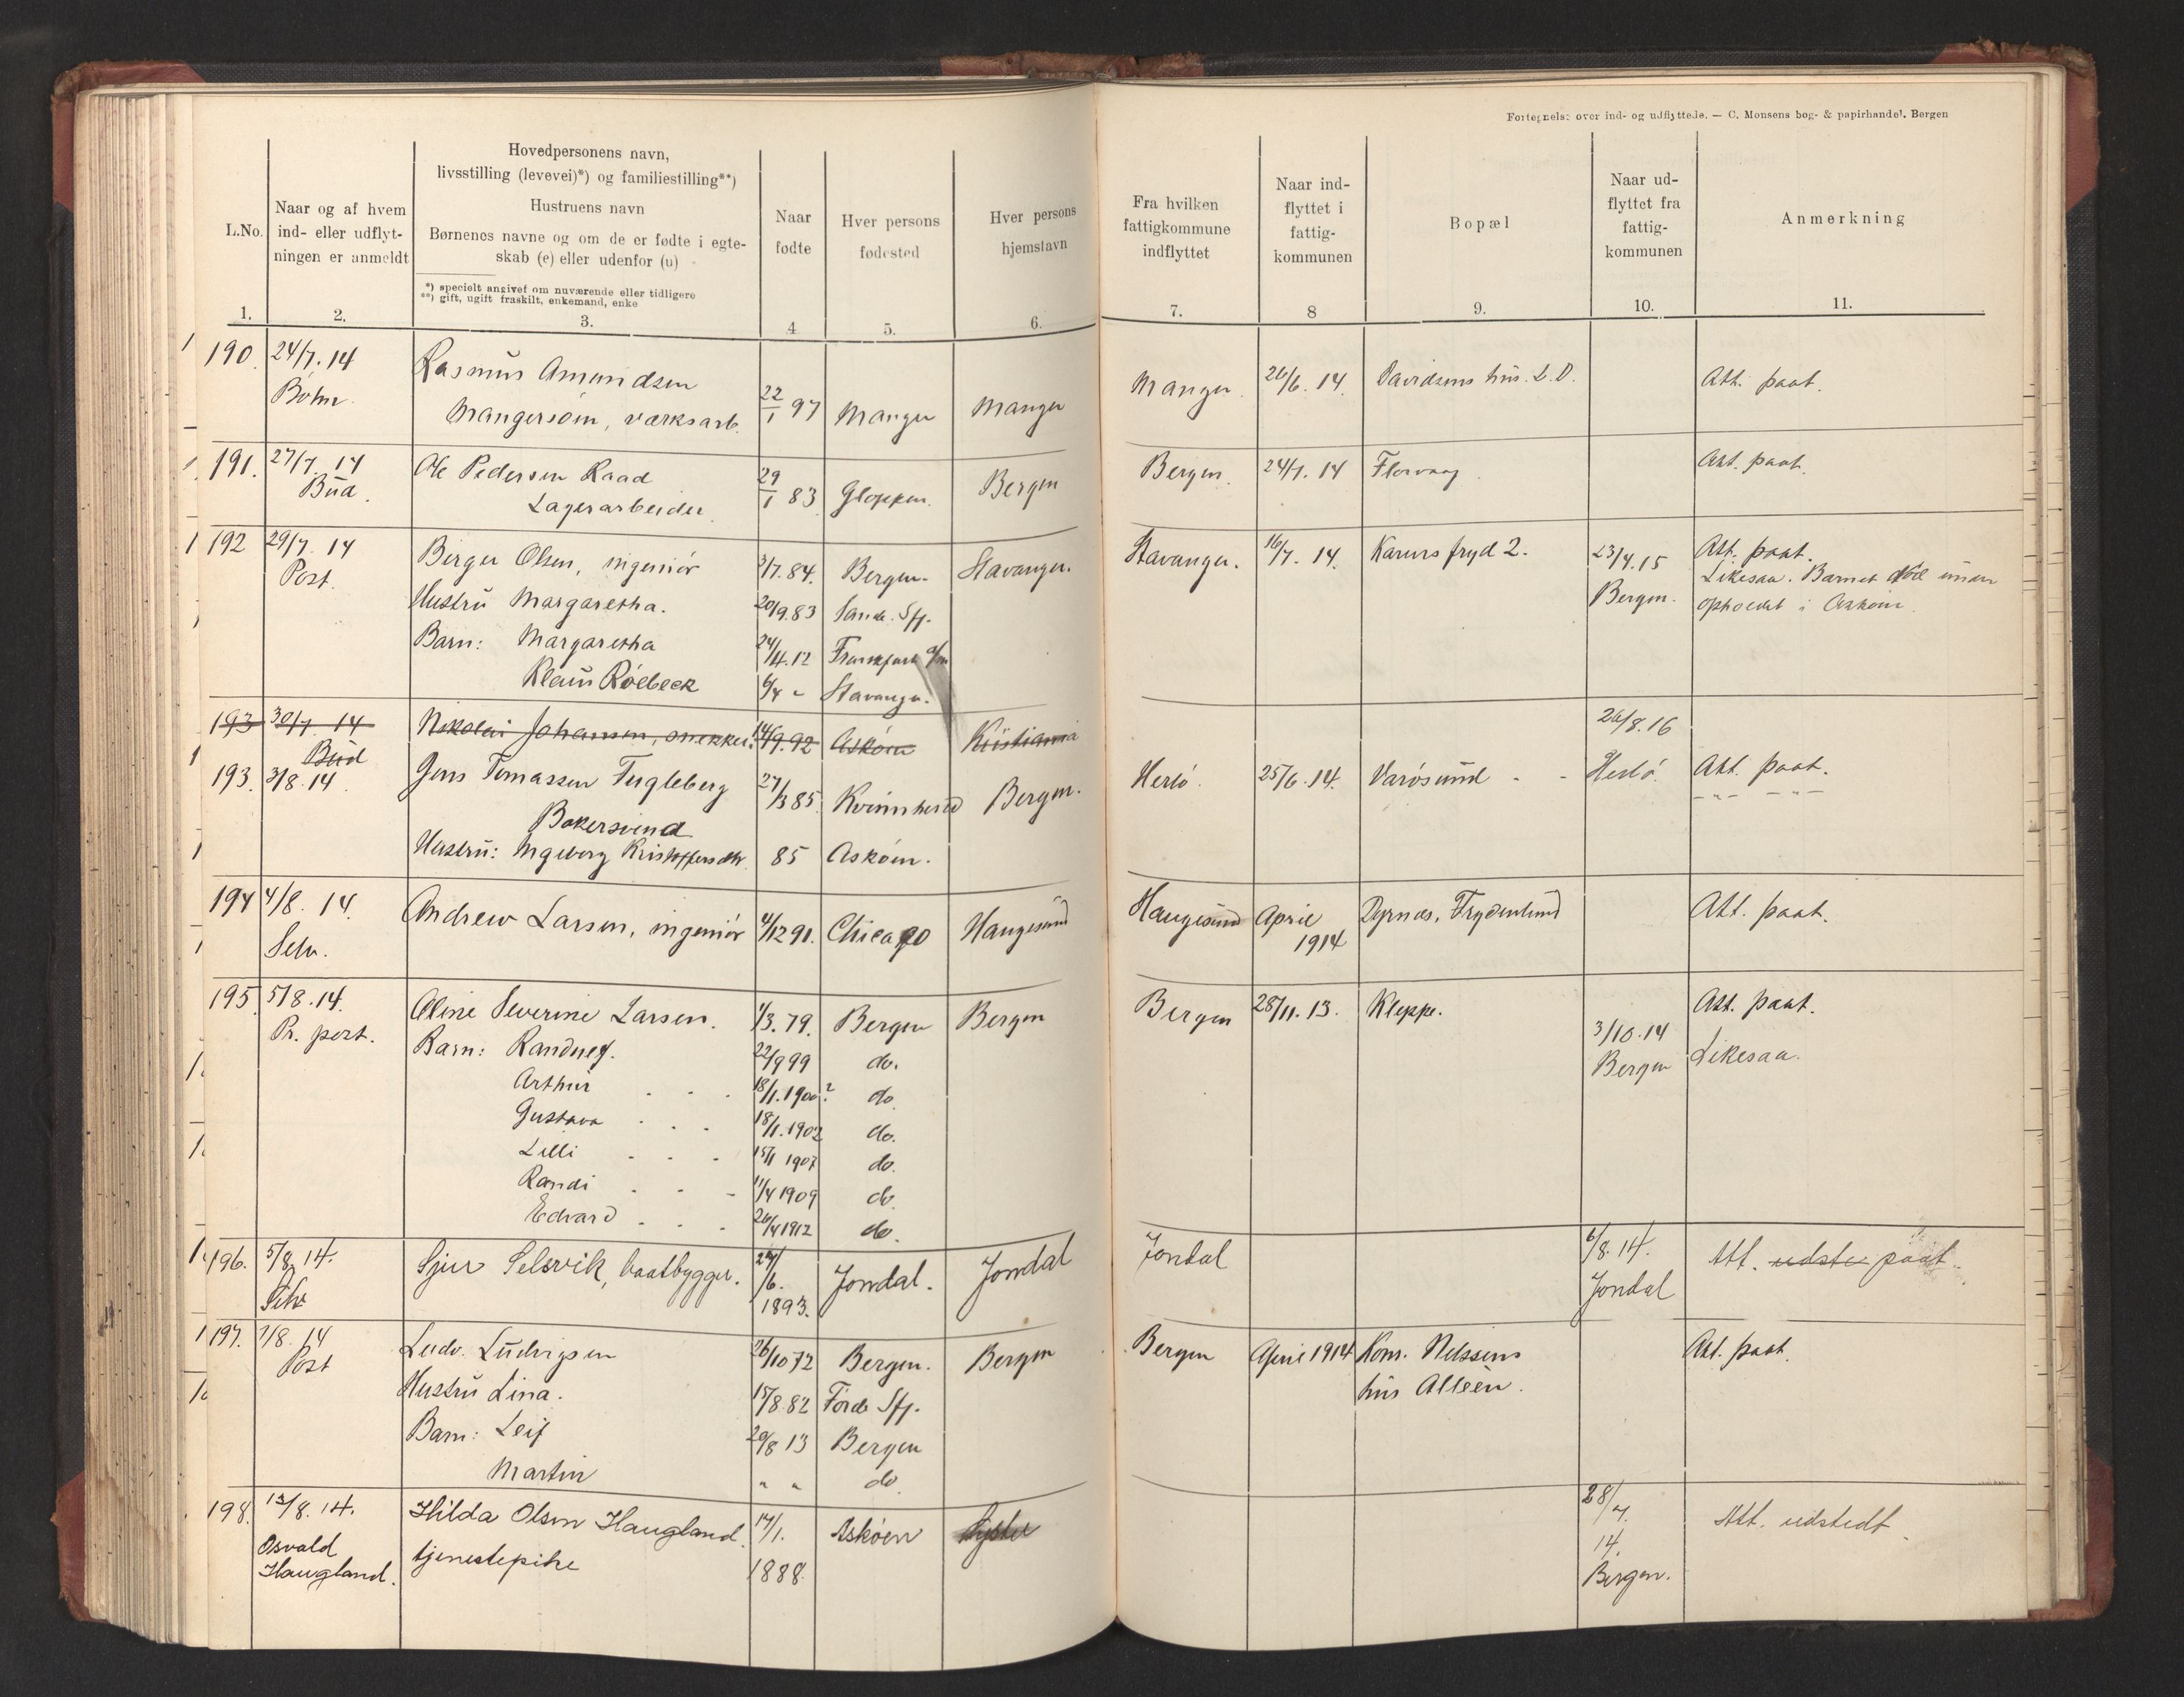 Fortegnelse over ind- og udflyttede. — C. Monsens bog- & papirhandel. Bergen
L.No.
1.
Naar og af hvem
ind- eller udflyt-
ningen er anmeldt
2.
Hovedpersonens navn,
livsstilling (levevei)*) og familiestilling**)
Hustruens navn
Børnenes navne og om de er fødte i egte-
skab (e) eller udenfor (u)
*) specielt angivet om nuværende eller tidligere
**) gift, ugift fraskilt, enkemand, enke
3.
Naar
fødte
4
Hver persons
fødested
5.
Hver persons
hjemstavn
6.
Fra hvilken
fattigkommune
indflyttet
7.
Naar ind-
flyttet i
fattig-
kommunen
8
Bopæl
9.
Naar ud-
flyttet fra
fattig-
kommunen
10.
Anmerkning
11.
190. 24/7. 14 Rasmus Amundsen Manger 26/6. 14. Davidsens hus. L.O. Att. paat.
Böhn. Mangersöin, værksarb. 22/1 97 Manger Manger
191. 27/7. 14 Ole Pedersen Raad 29/1 83 Gloppen. Bergen Bergen. 24/7. 14 Florvaag Att. paat.
Bud. Lagerarbeider
192 29/7. 14 Berger Olsen, ingeniör 3/7. 84. Bergen. Stavanger. Stavanger. 16/7. 14. Karens fryd 2. 23/4. 15 Att. paat.
Post. Hustru Margaretha. 20/9. 83 Sande. Sfj. Bergen. Likesaa. Barnet
opholdt i Asköen.
Barn: Margaretha 24/4. 12 Frankfurt a/m
Klaus Röebeck Stavanger.
193 30/7. 14 Nikolai Johansen, snekker. 14/9. 92 Asköen Kristiania 26/8. 16
Bud
193. 3/8. 14. Jens Tomassen Fugleberg 27/3 85. Kvinnherred Bergen. Herlö. 25/6. 14. Varösund Herlö. Att. paat.
Bakersvend
Hustru: Ingeborg Kristoffersdtr. 85 Asköen.
194 4/8. 14. Andrew Larsen, ingeniör 4/12 91. Chicago Haugesund Haugesund April Dyrnes, Frydenlund Att. paat.
Selv. 1914
195. 5/8. 14. Oline Severine Larsen. 1/3. 79. Bergen Bergen Bergen 28/11. 13. Kleppe. Att. paat.
Pr. post. Barn: Randney. 22/9 99 do. 3/10. 14 Likesaa.
Arthur 18/1. 1900? do. Bergen
Gustava 18/1. 1902 do.
Lilli 15/1 1907 do.
Randi 11/4 1909 do.
Edvard 26/4 1912 do.
196. 5/8. 14. Sjur Selsvik, baatbygger. 24/6. 1893. Jondal. Jondal Jondal 6/8. 14. Att. udste paat.
Selv Jondal
197. 7/8. 14 Ludv. Ludvigsen 26/10 72 Bergen. Bergen Bergen April 1914 Kons. Nilssens Att. paat.
Post Hustru Lina. 15/8. 82 Förde Sfj. hus Alleèn.
Barn: Leif 20/8 13 Bergen
Martin " " do.
198. 13/8. 14. Hilda Olsen Haugland. 17/1. Asköen Lyster 28/7. Att. udstedt.
Osvald tjenestepike 1888. 14.
Haugland. Bergen.